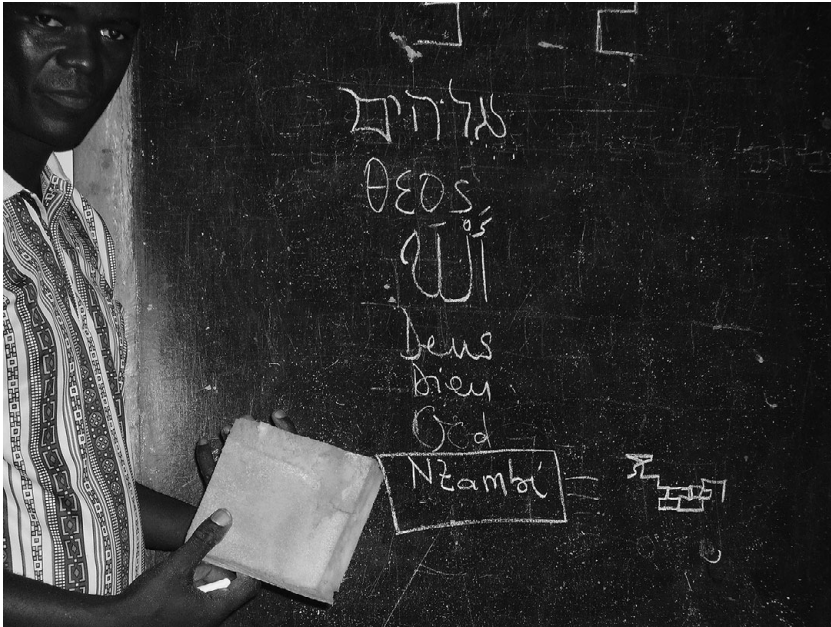 אלהים
θεος
اَللّه
Deus
Dieu
God
Nzambi